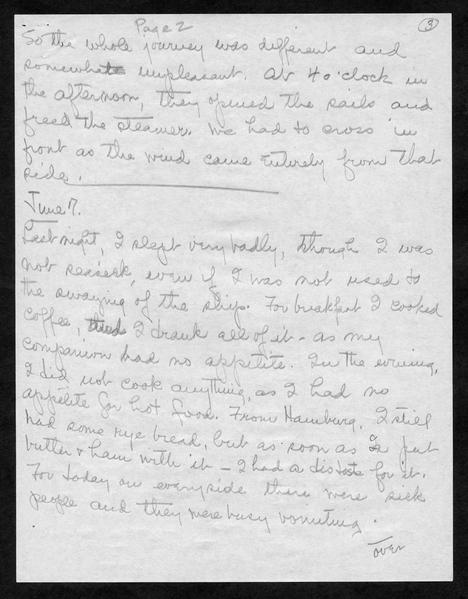 Page 2
3
So the whole journey was different and
somewhat unpleasant. At 4 o'clock in
the afternoon, they opened the sails and
freed the steamer. We had to cross in
front as the wind came entirely from that
side.
June 7.
Last night, I slept very badly, though I was
not seasick, even if I was not used to
the swaying of the ship. For breakfast I cooked
coffee, I drank all of it - as my
companion had no appetite. In the evening,
I did not cook anything, as I had no
appetite for hot food. From Hamburg, I still
had some rye bread, but as soon as I put
butter & ham with it - I had a distaste for it.
For today on everyside there were sick
people and they were busy vomiting.
over